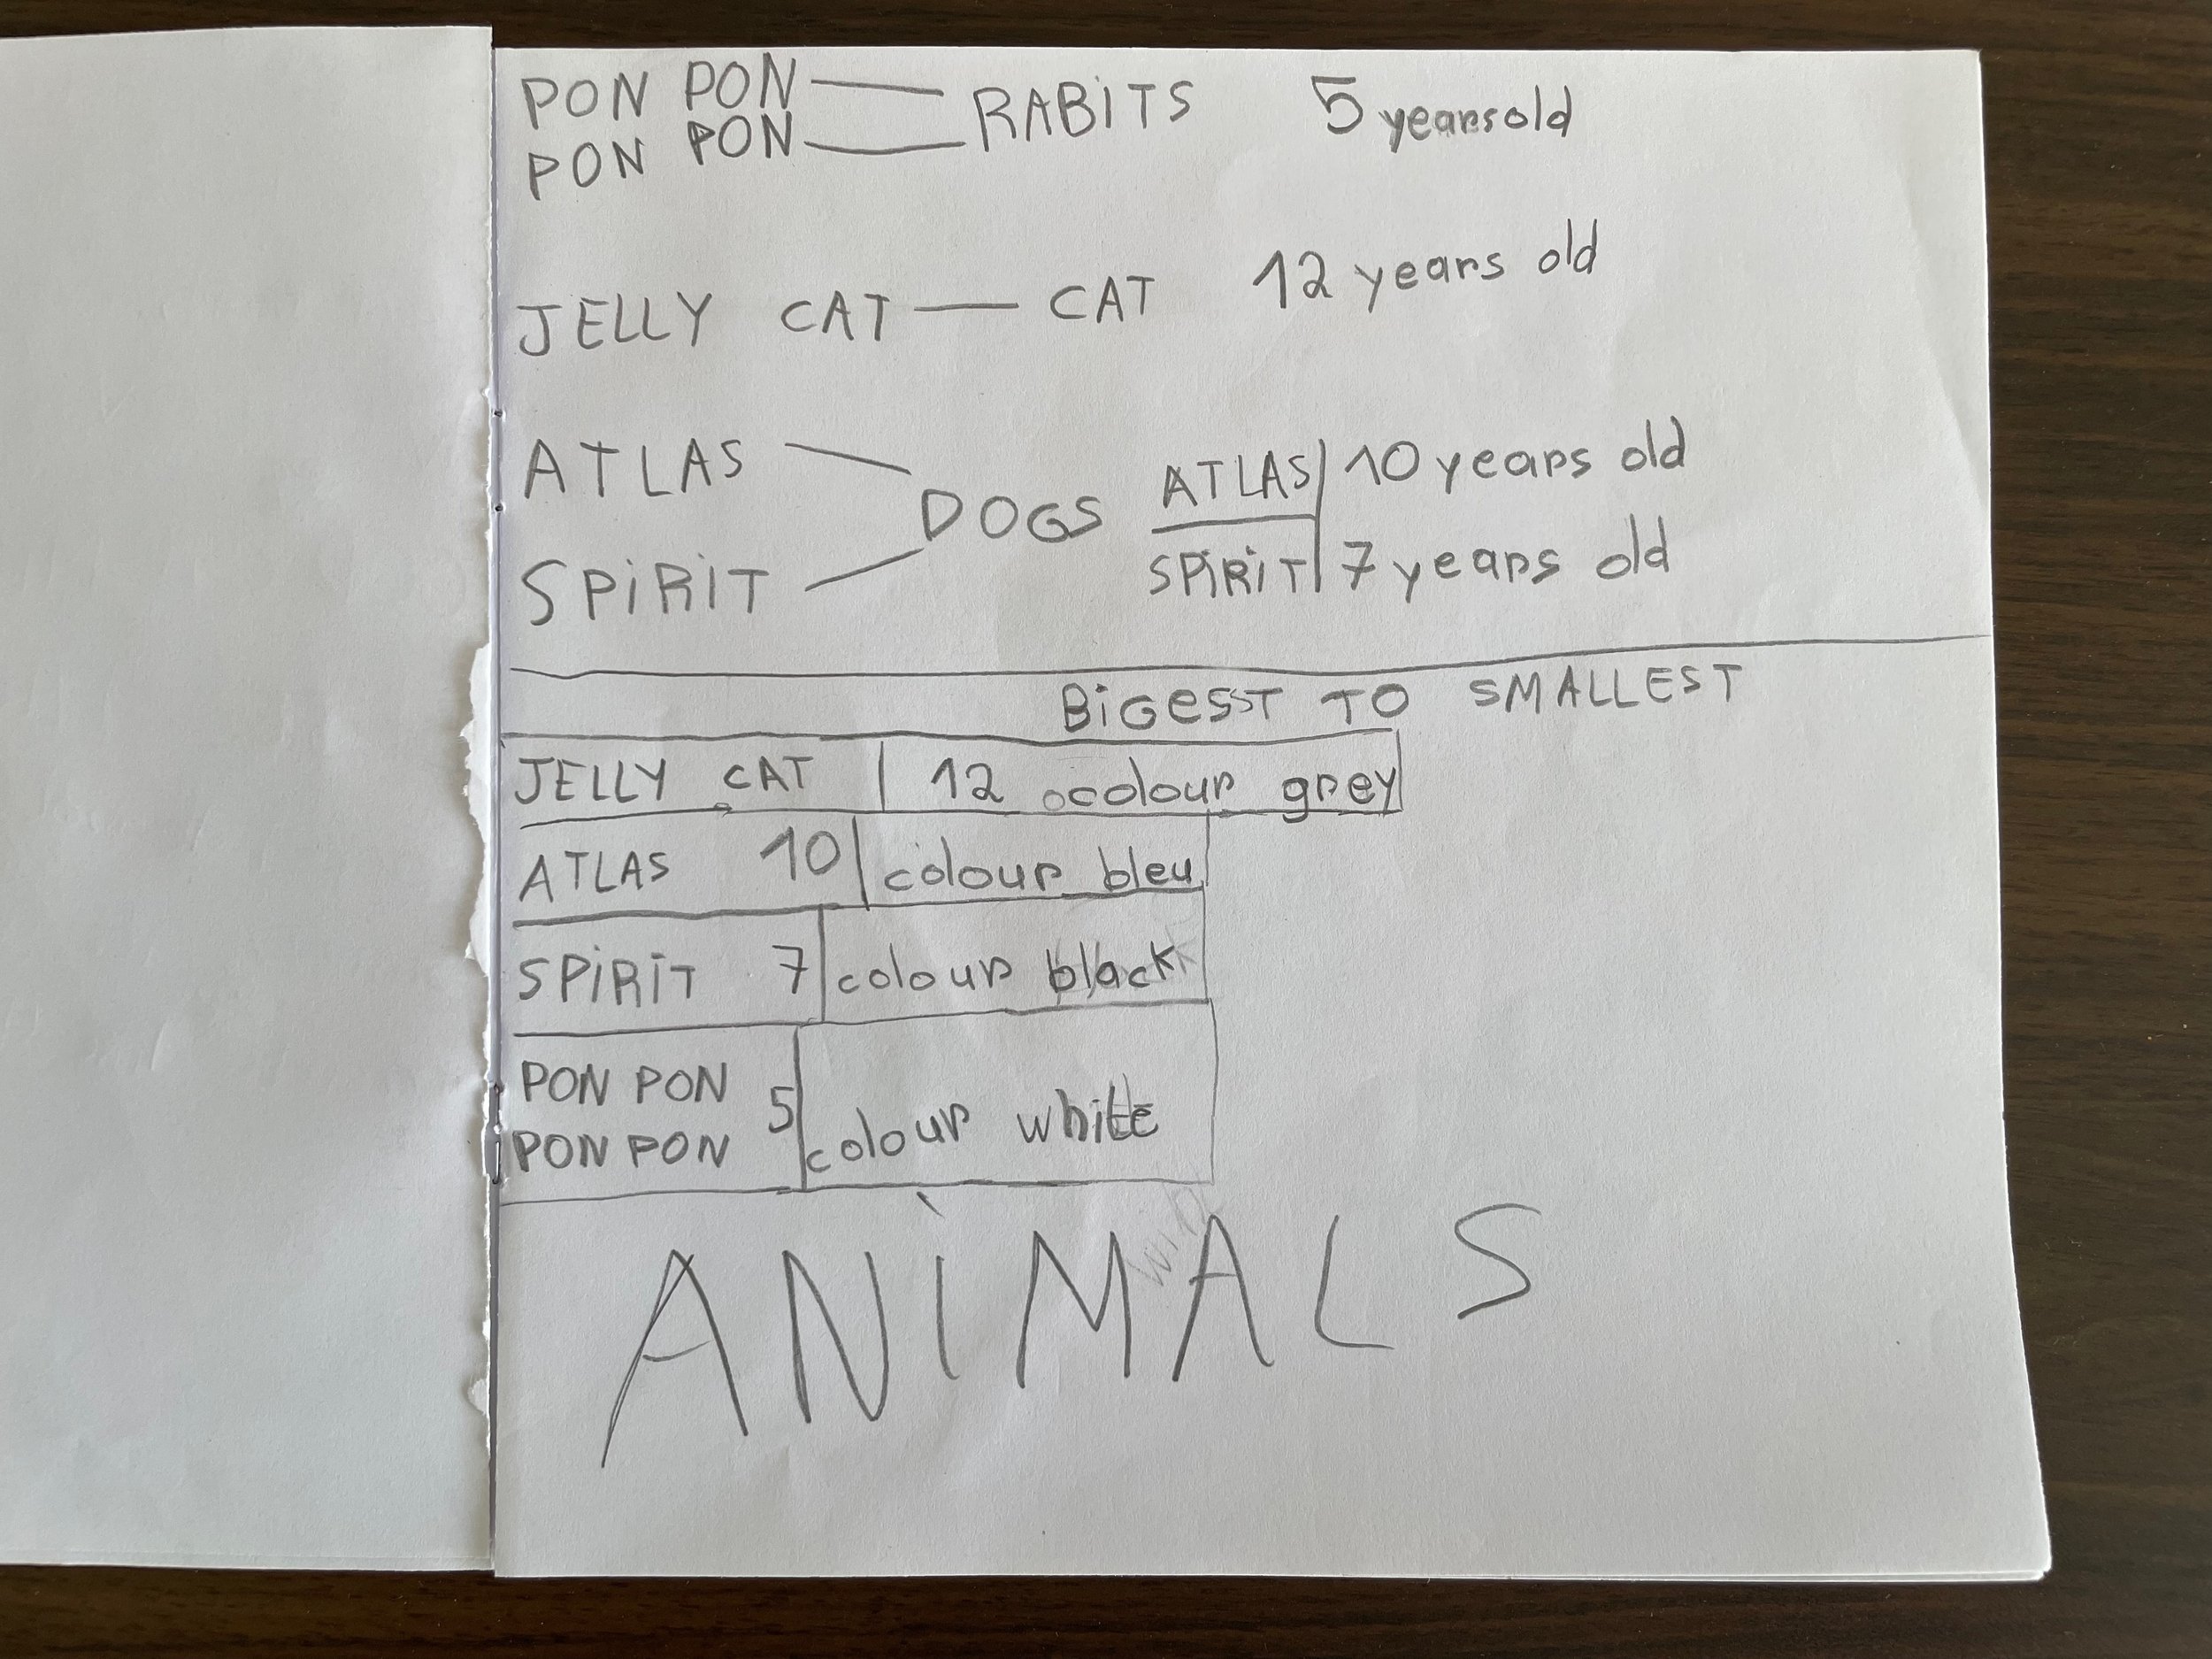 PON PON
PON PON
RABiTS 5 years old
JELLY CAT CAT 12 years old
ATLAS
SPiRiT
DOGS
ATLAS 10 years old
SPiRiT 7 years old
BiGeSST TO SMALLEST
JELLY CAT 12 colour grey
ATLAS 10 colour bleu
SPiRiT 7 colour black
PON PON
PON PON
5 colour white
ANiMALS